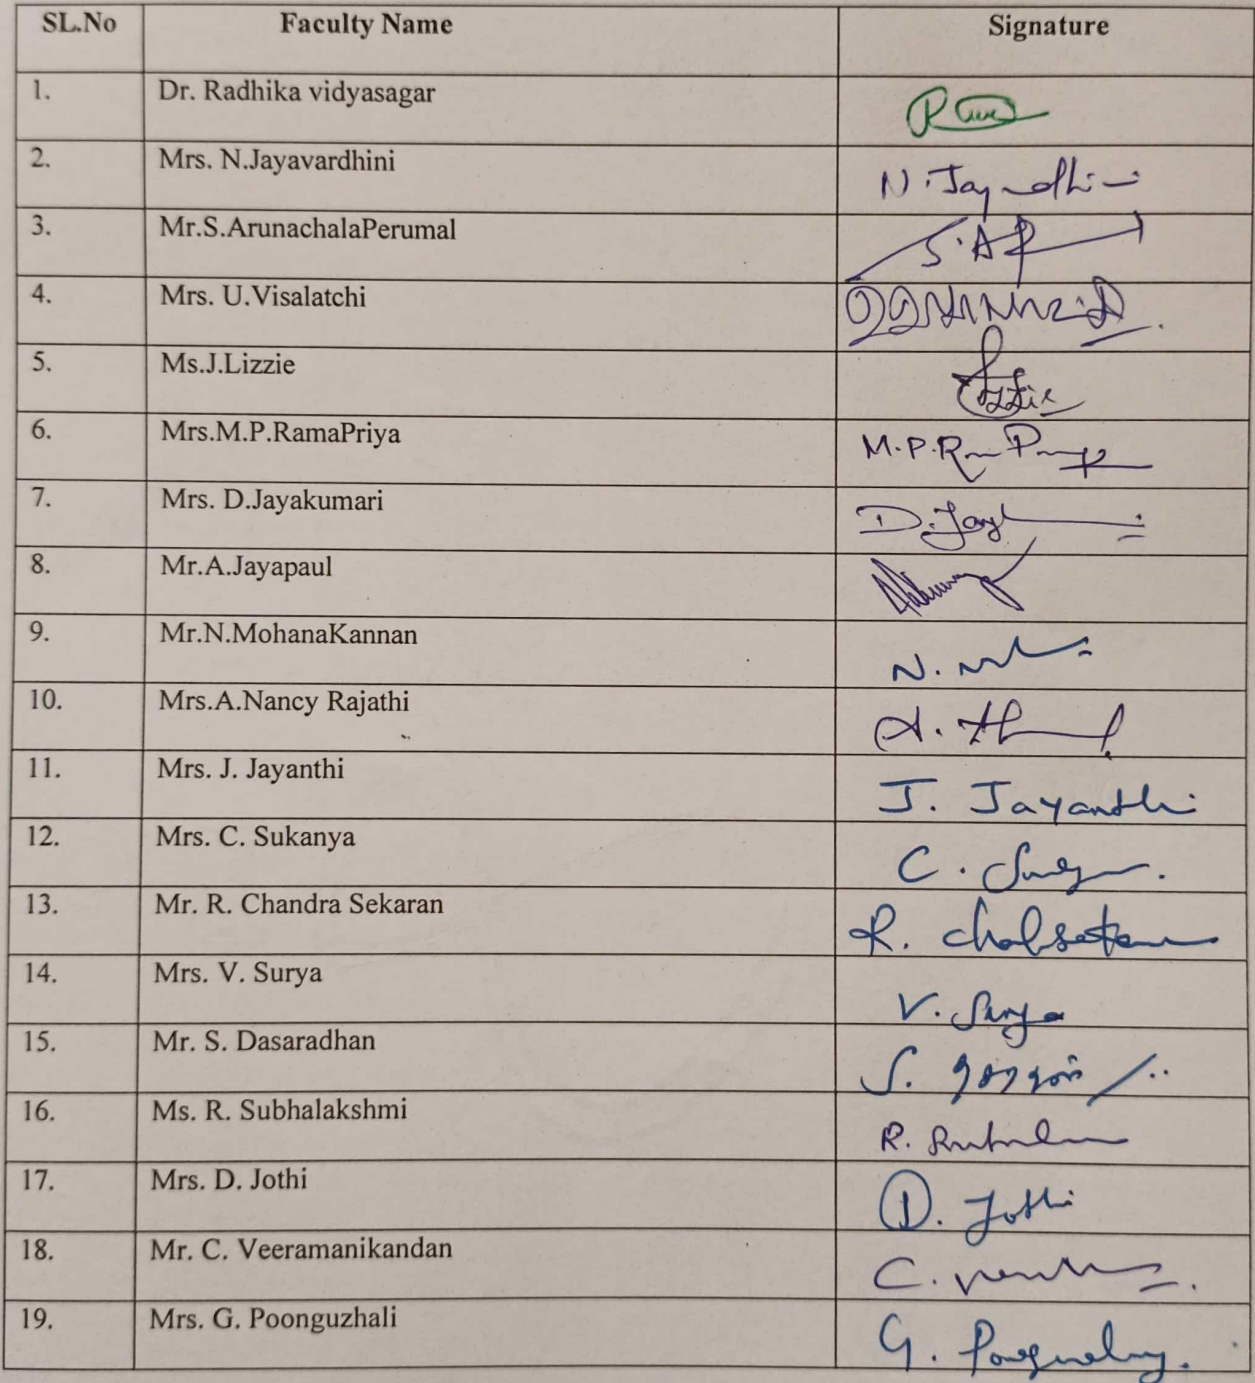 SL.No Faculty Name Signature
1. Dr. Radhika vidyasagar
2. Mrs. N.Jayavardhini N.
3. Mr.S.ArunachalaPerumal S.AP
4. Mrs. U.Visalatchi
5. Ms.J.Lizzie Lizzie
6. Mrs.M.P.RamaPriya M.P.
7. Mrs. D.Jayakumari D.
8. Mr.A.Jayapaul
9. Mr.N.MohanaKannan N.
10. Mrs.A.Nancy Rajathi A.
11. Mrs. J. Jayanthi J. Jayanthi
12. Mrs. C. Sukanya C.
13. Mr. R. Chandra Sekaran R.
14. Mrs. V. Surya V. Surya
15. Mr. S. Dasaradhan S.
16. Ms. R. Subhalakshmi R.
17. Mrs. D. Jothi D. Jothi
18. Mr. C. Veeramanikandan C.
19. Mrs. G. Poonguzhali G.